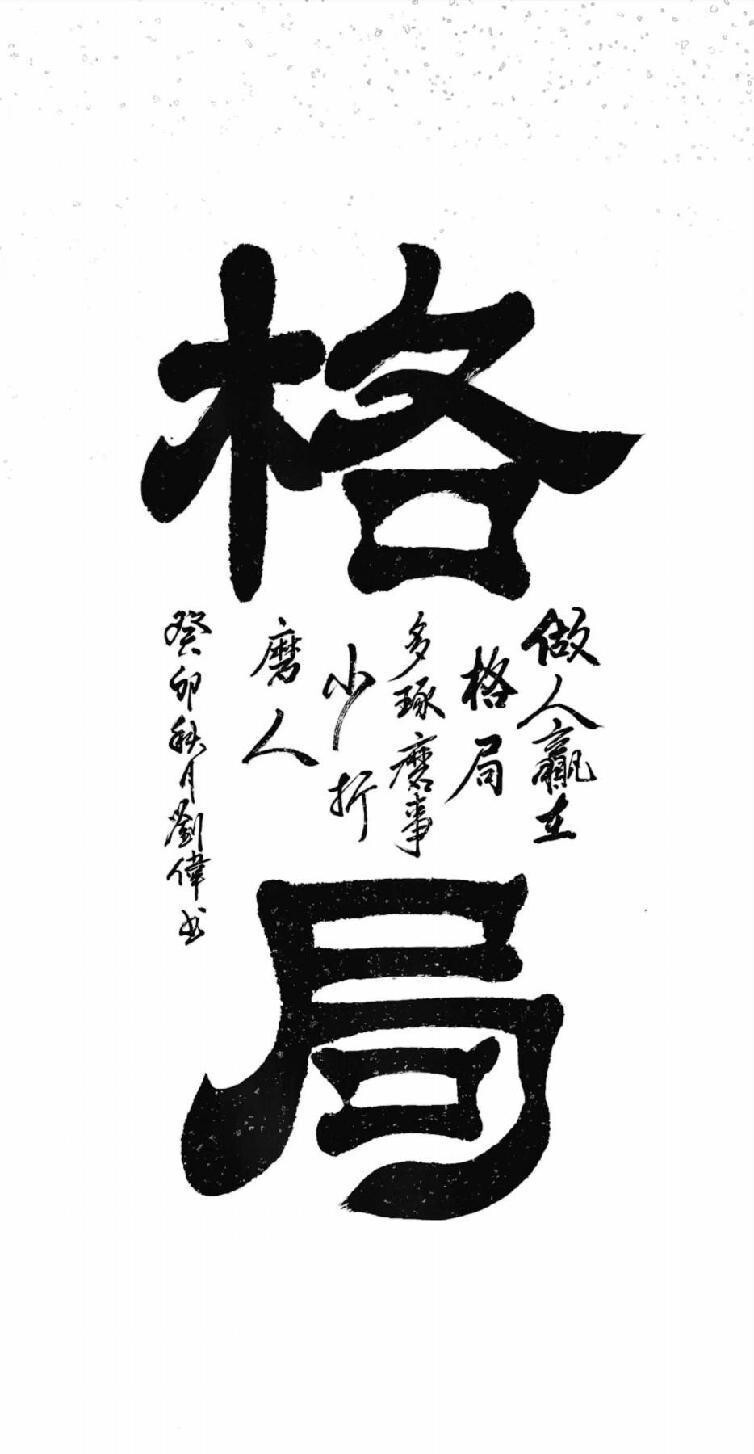 格
局
做人赢在
格局
多琢磨事
少折
磨人
癸卯秋月劉偉书